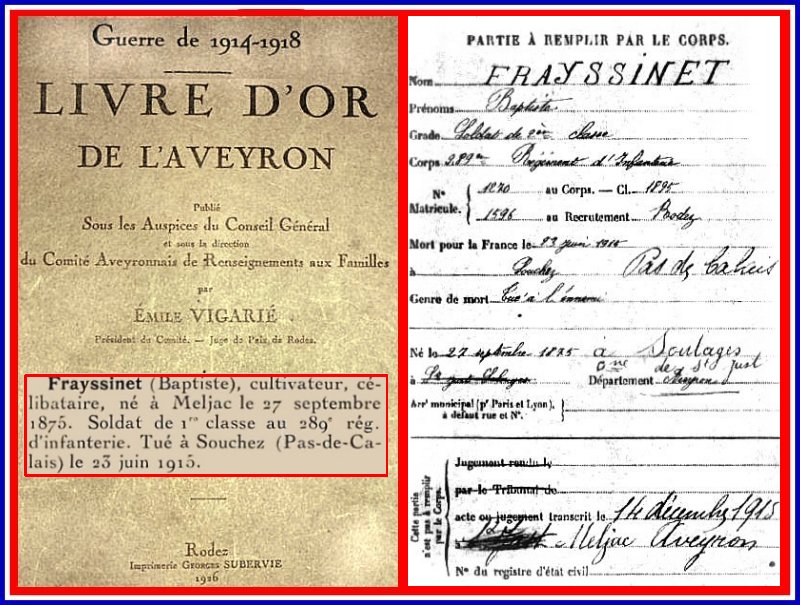 Guerre de 1914-1918
LIVRE D'OR
DE L'AVEYRON
Publié
Sous les Auspices du Conseil Général
et sous la direction
du Comité Aveyronnais de Renseignements aux Familles
par
ÉMILE VIGARIÉ
Président du Comité. — Juge de Paix de Rodez.
Frayssinet (Baptiste), cultivateur, cé-
libataire, né à Meljac le 27 septembre
1875. Soldat de 1re classe au 289e rég.
d'infanterie. Tué à Souchez (Pas-de-Ca-
lais) le 23 juin 1915.
Rodez
Imprimerie GEORGES SUBERVIE
1926
PARTIE À REMPLIR PAR LE CORPS.
Nom FRAYSSINET
Prénoms Baptiste
Grade Soldat de 2me classe
Corps 289me Régiment d'Infanterie
N° Matricule. 1270 au Corps. — Cl. 1895
1596 au Recrutement Rodez
Mort pour la France le 23 juin 1915
à Souchez Pas de Calais
Genre de mort Tué à l'ennemi
Né le 27 septembre 1875 à Soulages
Cne de St just
à Département Aveyron
Arrt municipal (pr Paris et Lyon),
à défaut rue et N°.
Cette partie n'est pas à remplir par le Corps.
Jugement rendu le
par le Tribunal de
acte ou jugement transcrit le 14 décembre 1915
à Meljac Aveyron
N° du registre d'état civil